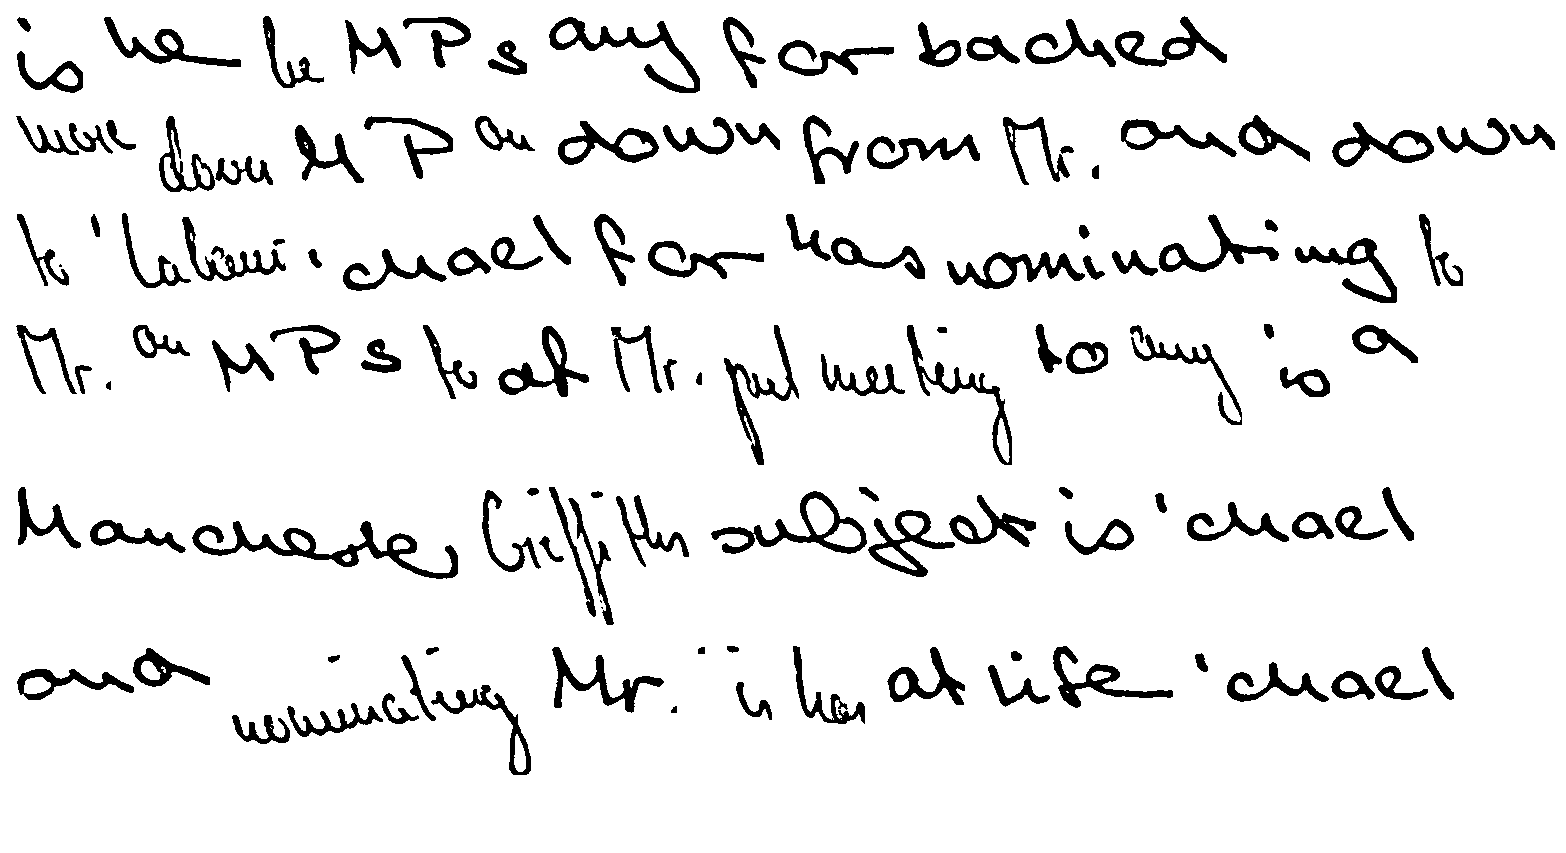 is he be MPs any for backed
more down MP an down from Mr. and down
to ' Labour . chael for has nominating to
Mr. an MPs to at Mr. put meeting to any is a
Manchester Griffiths subject is ' chael
and nominating Mr. in has at life ' chael